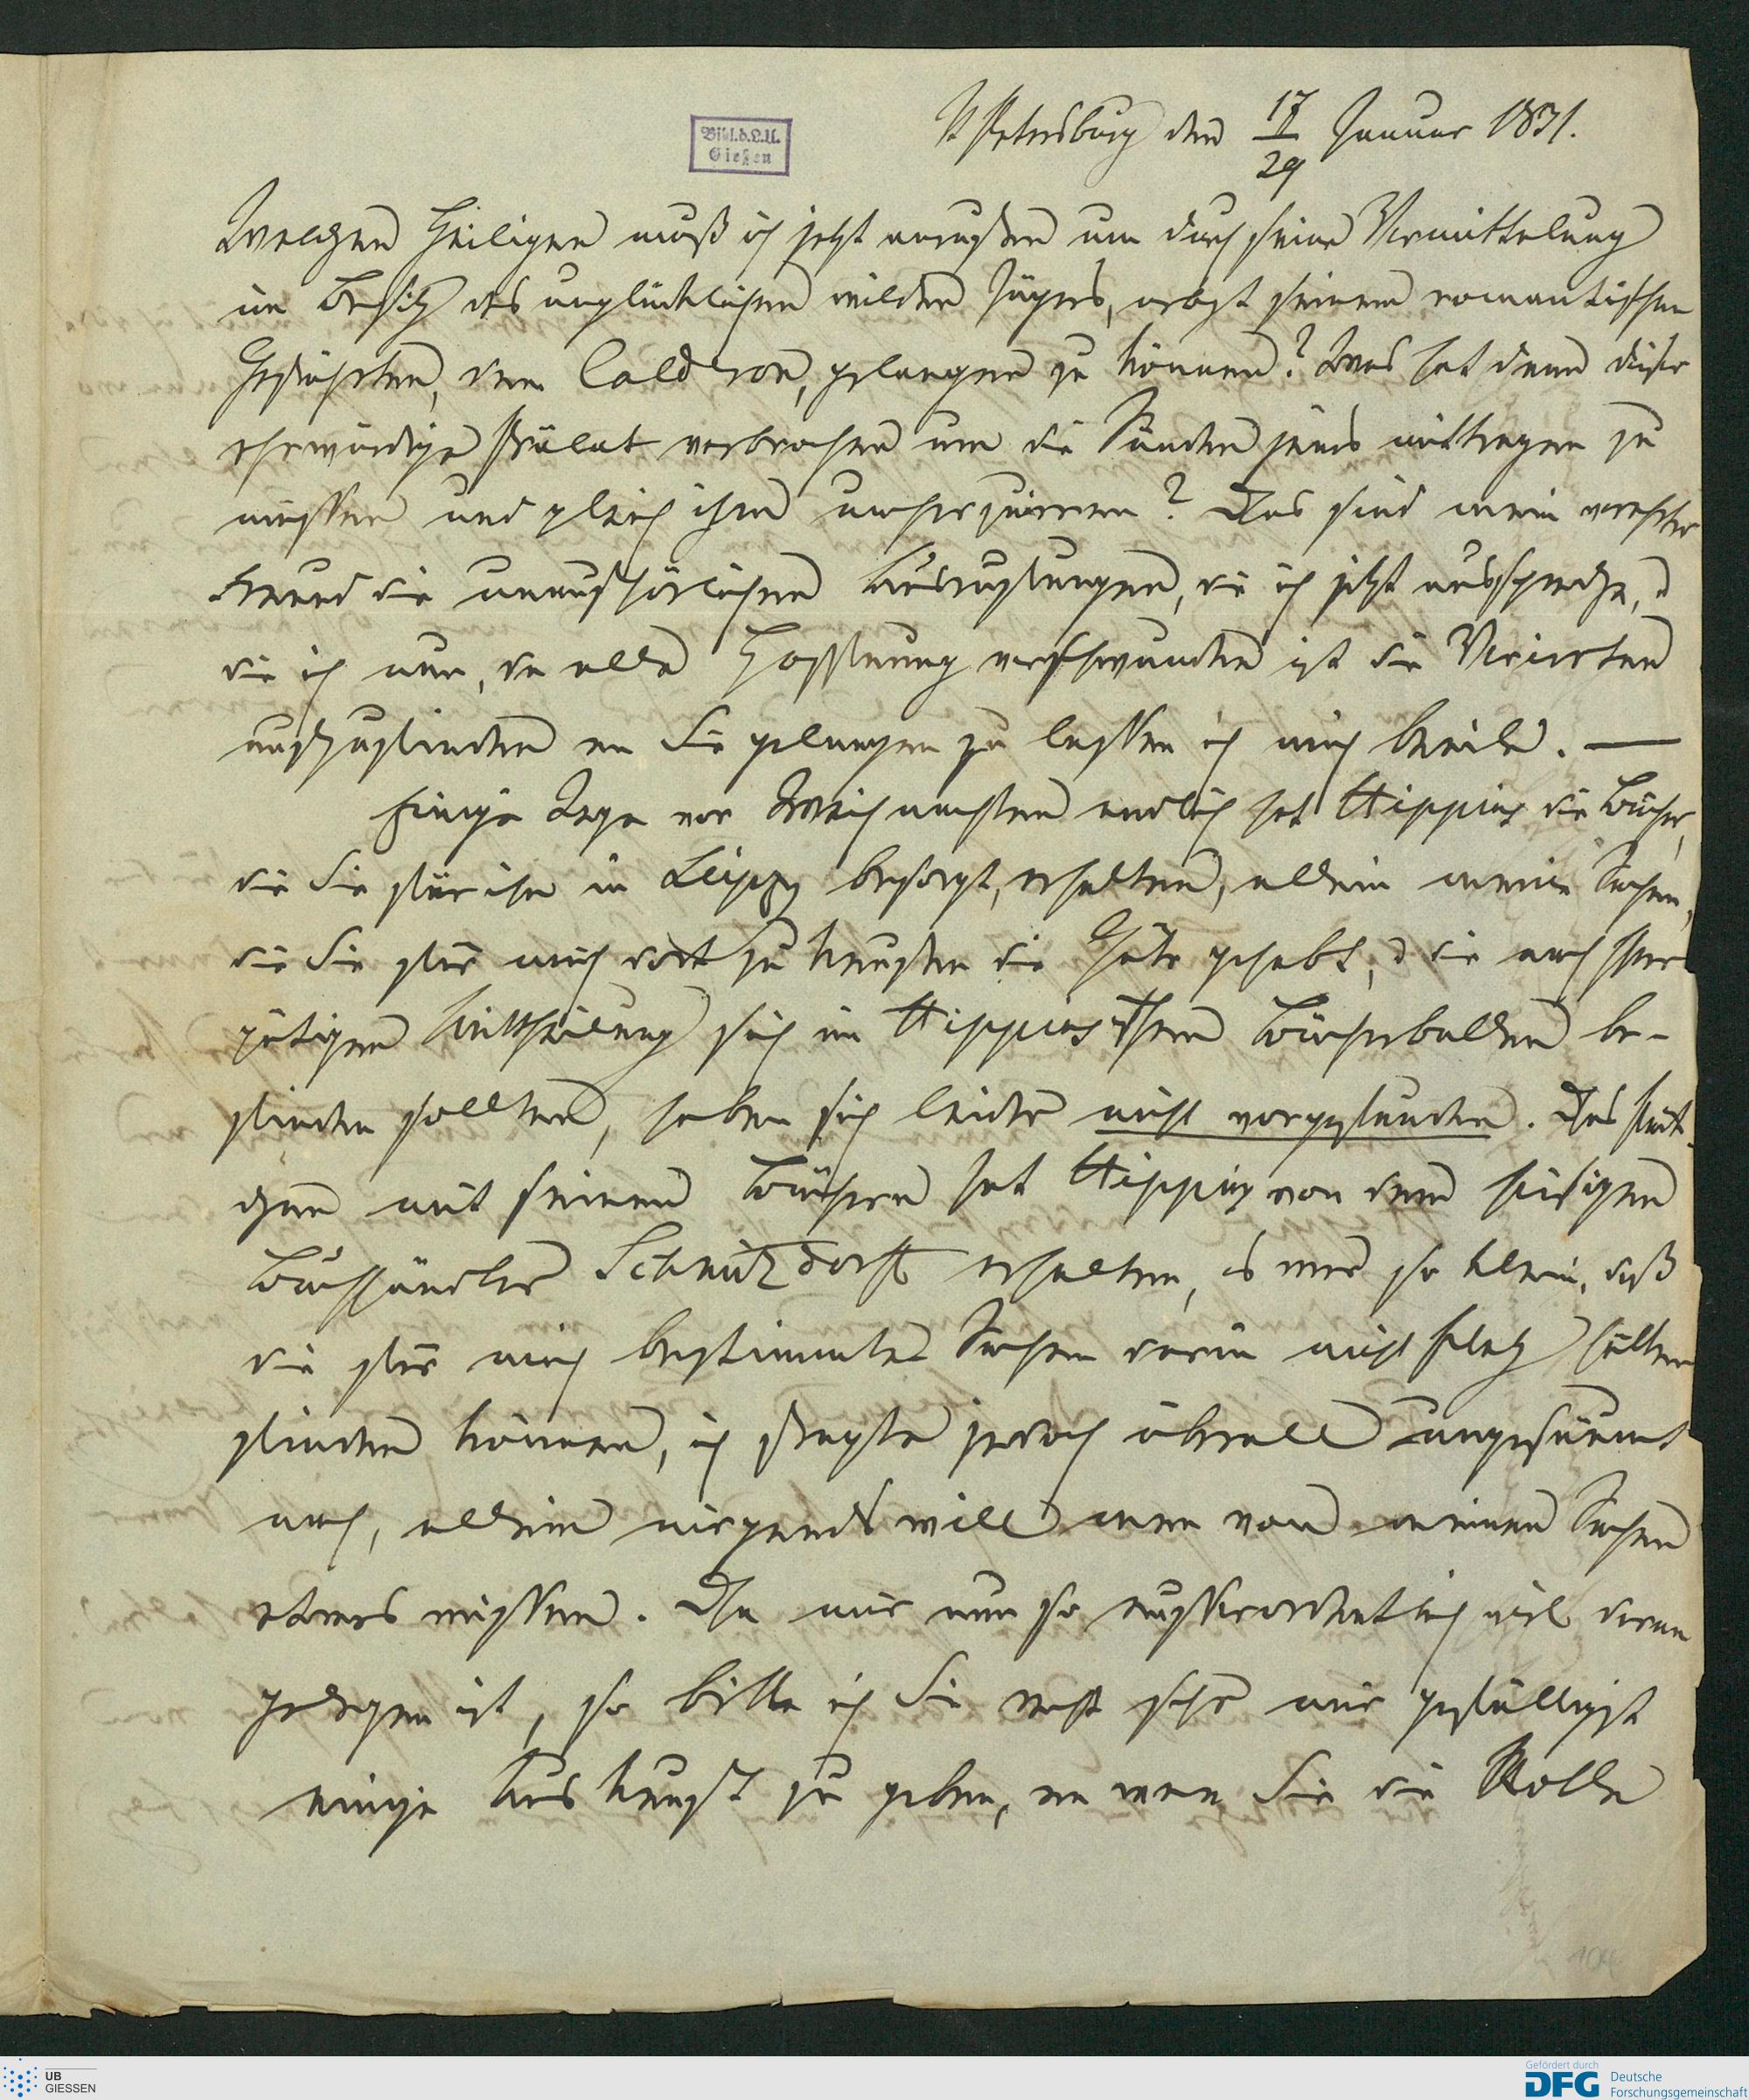 Bibl.d.L.U.
Gießen
St Petersburg den 17/29 Januar 1831.
Welchen Heiligen muß ich jetzt anrufen um durch seine Vermittelung
in Besitz des unglücklichen wilden Jägers, nebst seinem romantischen
Gefährten, dem Calderon, gelangen zu können? Was hat denn dieser
ehrwürdige Prälat verbrochen um die Sünden jenes mittragen zu
müssen und gleich ihm umherzuirren? Das sind mein verehrter
Freund die unaufhörlichen Ausrufungen, die ich jetzt ausspreche, u
die ich nun, da alle Hoffnung verschwunden ist die Verirrten
aufzufinden an Sie gelangen zu lassen ich mich beeile. —
Einige Tage vor Weihnachten endlich hat Hippius die Bücher,
die Sie für ihn in Leipzig besorgt, erhalten, allein meine Sachen,
die Sie für mich dort zu kaufen die Güte gehabt, u die nach Ihrer
gütigen Mittheilung sich im Hippiusschen Bücherballen be-
finden sollten, haben sich leider nicht vorgefunden. Das Päck-
chen mit seinen Büchern hat Hippius von dem hiesigen
Buchhändler Schmitzdorff erhalten, es war so klein, daß
die für mich bestimmten Sachen darin nicht Platz hätten
finden können, ich fragte jedoch überall ungesäumt
nach, allein nirgends will man von meinen Sachen
etwas wissen. Da mir nun so ausserordentlich viel daran
gelegen ist, so bitte ich Sie recht sehr mir gefälligst
einige Auskunft zu geben, an wen Sie die Rolle
UB
GIESSEN
Gefördert durch
DFG Deutsche
Forschungsgemeinschaft